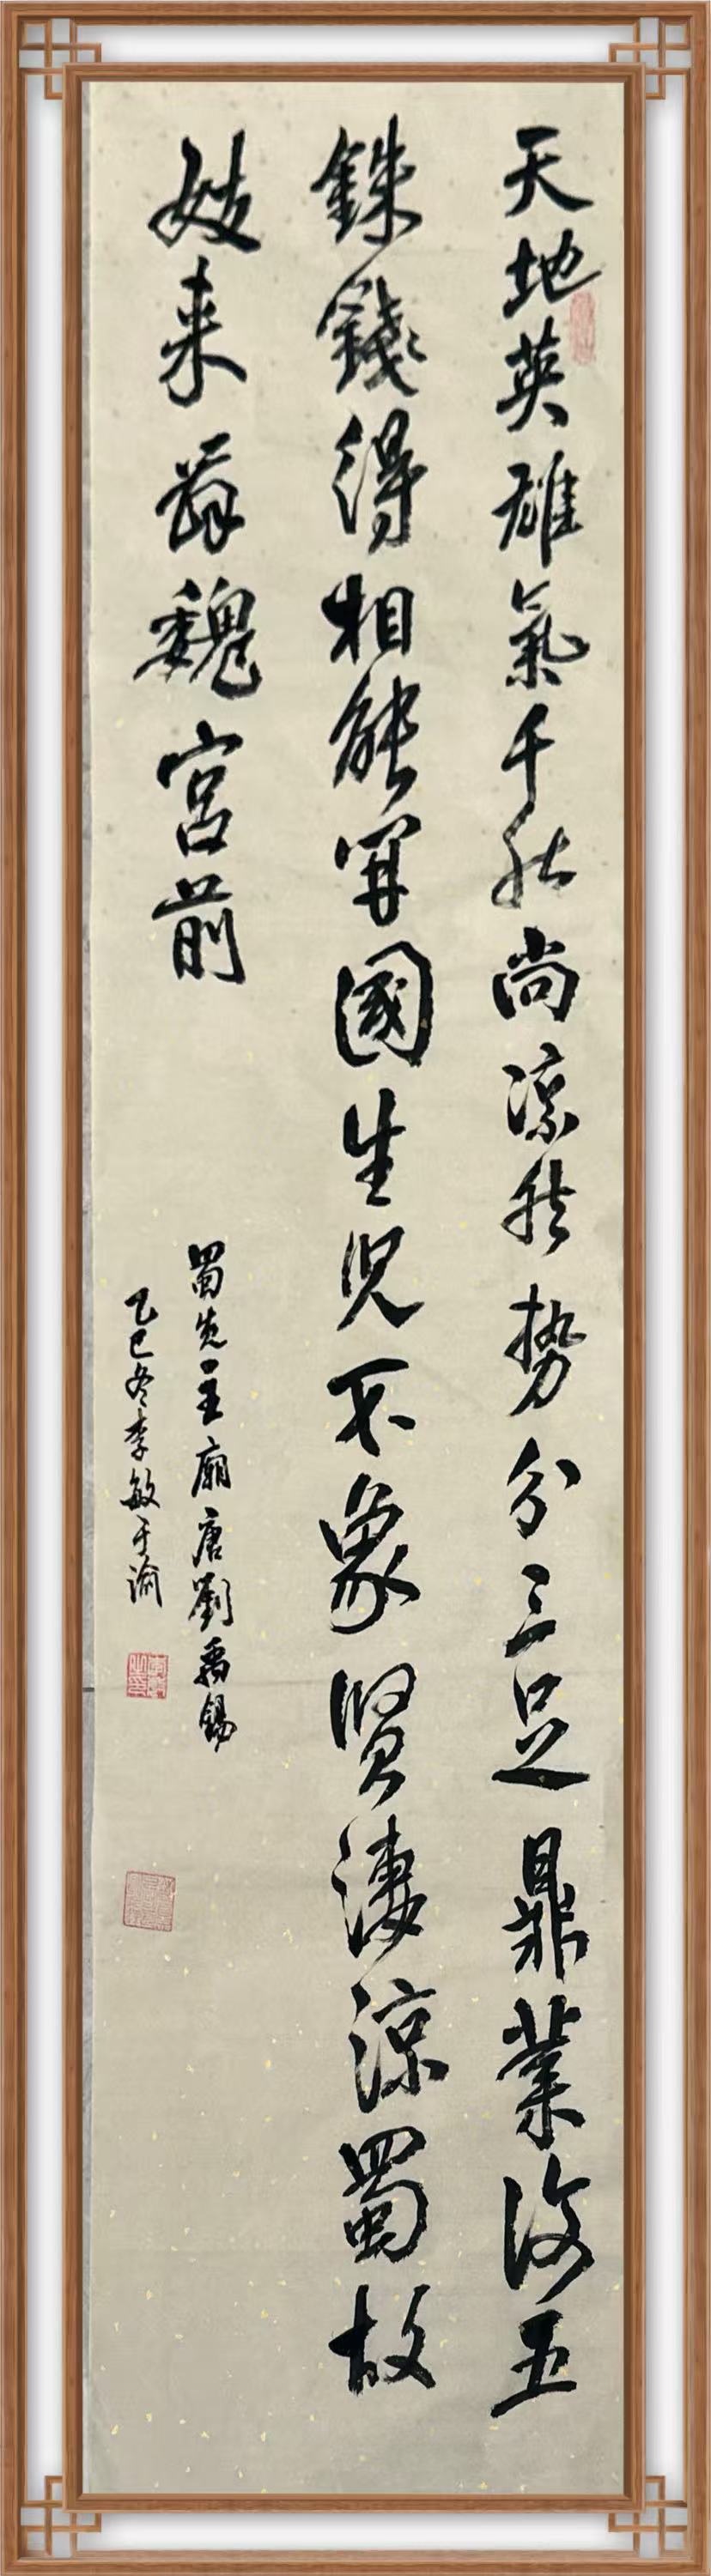 天地英雄氣千秋尚凛然势分三足鼎業復五
銖錢得相能開國生児不象賢淒涼蜀故
妓来舞魏宮前
蜀先主廟唐劉禹錫
乙巳冬李敏于渝